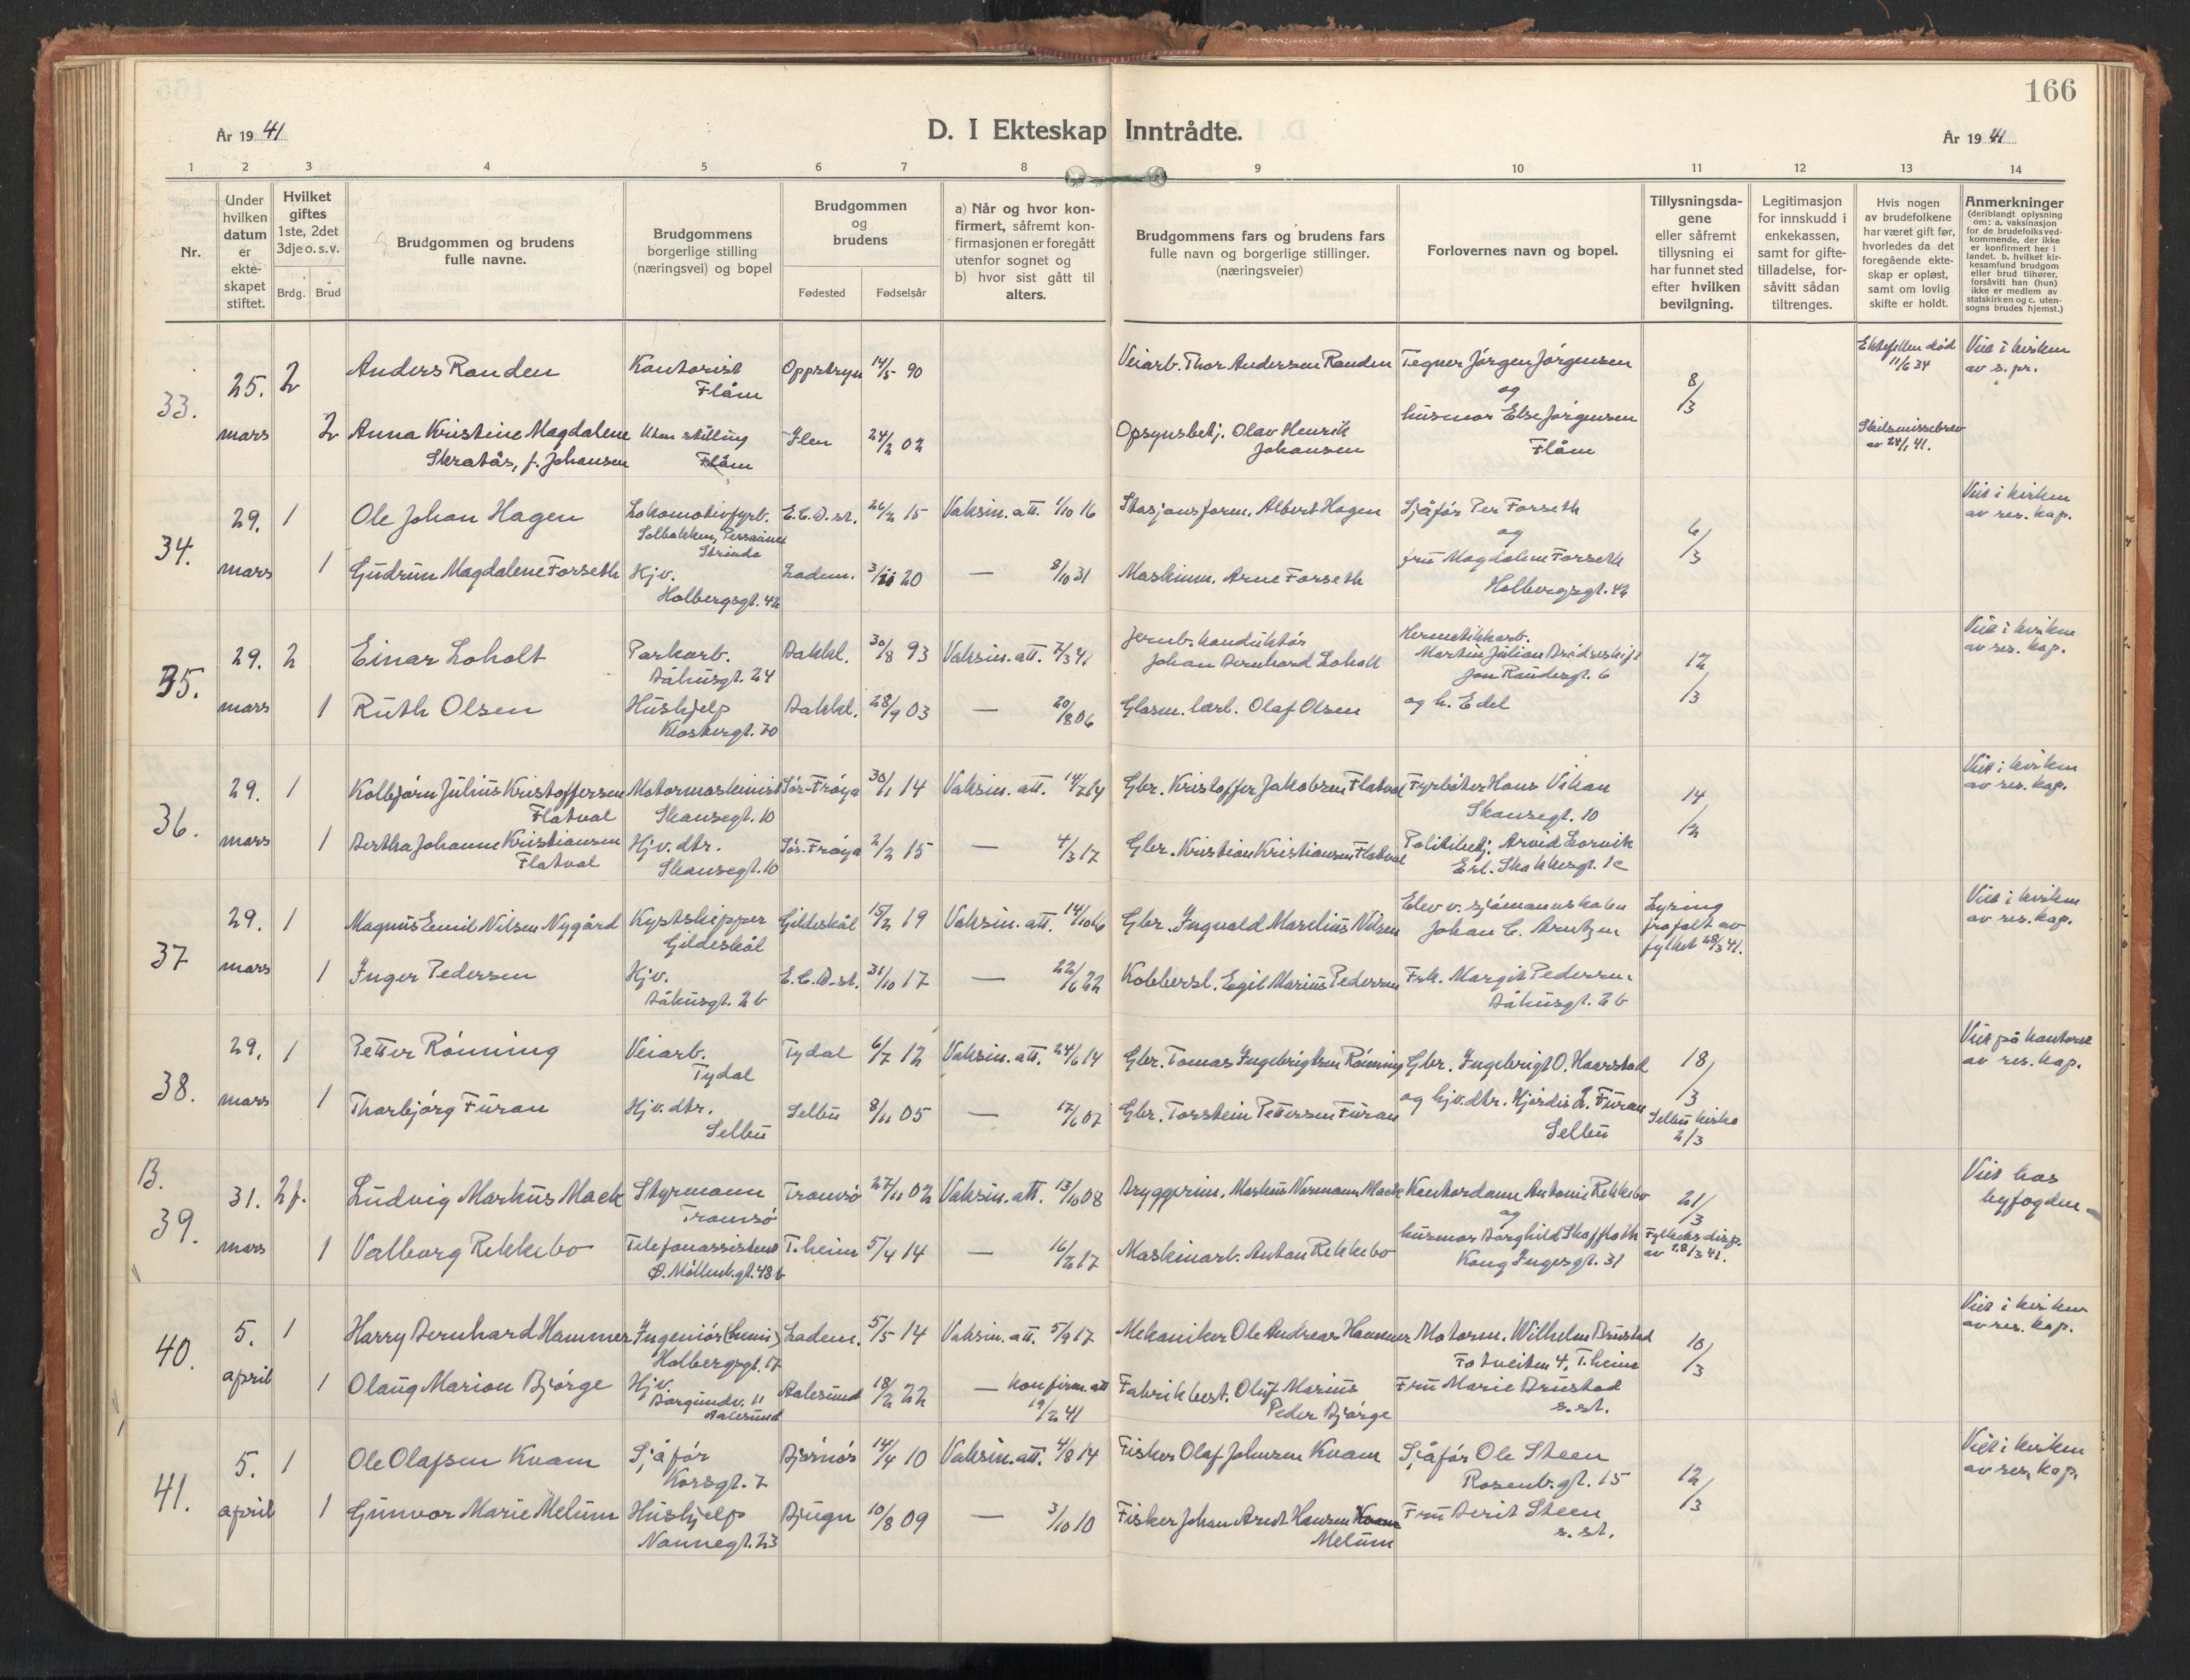 166
År 1941
D. I Ekteskap Inntrådte.
År 1941
1 2 3 4 5 6 7 8 9 10 11 12 13 14
Nr.
Under hvilken datum er ekte-skapet stiftet.
Hvilket giftes 1ste, 2det 3dje o. s. v.
Brdg. Brud
Brudgommen og brudens fulle navne.
Brudgommens borgerlige stilling (næringsvei) og bopel
Brudgommen og brudens
Fødested Fødselsår
a) Når og hvor kon-firmert, såfremt kon-firmasjonen er foregått utenfor sognet og b) hvor sist gått til alters.
Brudgommens fars og brudens fars fulle navn og borgerlige stillinger. (næringsveier)
Forlovernes navn og bopel.
Tillysningsda-gene eller såfremt tillysning ei har funnet sted efter hvilken bevilgning.
Legitimasjon for innskudd i enkekassen, samt for gifte-tilladelse, for-såvitt sådan tiltrenges.
Hvis nogen av brudefolkene har været gift før, hvorledes da det foregående ekte-skap er opløst, samt om lovlig skifte er holdt.
Anmerkninger (deriblandt oplysning om: a. vaksinasjon for de brudefolksved-kommende, der ikke er konfirmert her i landet. b. hvilket kir-kesamfund brudgom eller brud tilhører, forsåvitt han (hun) ikke er medlem av statskirken og c. uten-sogns brudes hjemst.)
33. 25. 2 Anders Randen Kontorist Oppstryn 14/5 90 Veiarb. Thor Andersen Randen Tegner Jørgen Jørgensen 8/3 Ektefellen død Viet i kirken
Flåm og 11/6 34 av s. pr.
mars 2 Anna Kristine Magdalene Uten stilling Ilen 24/2 02 Opsynsbetj. Olav Henrik husmor Else Jørgensen Skilsmissebrev
Skratås, f. Johansen Flåm Johansen Flåm av 24/1 41.
34. 29. 1 Ole Johan Hagen Lokomotivfyrb. E.C.D. st. 26/2 15 Vaksin. att. 1/10 16 Stasjonsform. Albert Hagen Sjåfør Per Forseth 6/3 Viet i kirken
Solbakken, Persaunet Strinda og av res. kap.
mars 1 Gudrun Magdalene Forseth Hjv. Ladem. 3/11 20 — 8/10 31 Maskinm. Arne Forseth fru Magdalene Forseth
Holbergsgt. 42 Holbergsgt. 42
35. 29. 2 Einar Loholt Parkarb. Bakkl. 30/8 93 Vaksin. att. 7/3 41 Jernb.konduktør Hermetikkarb. 12/3 Viet i kirken
Båhusgt. 24 Johan Bernhard Loholt Martin Julian av res. kap.
Jon Raudesgt. 6
mars 1 Ruth Olsen Hushjelp Bakkl. 28/9 03 — 20/8 06 Glasm. lærl. Olaf Olsen og h. Edel
Klostergt. 70
36. 29. 1 Kolbjørn Julius Kristoffersen Motormaskinist Sør-Frøya 30/1 14 Vaksin. att. 14/7 14 Gbr. Kristoffer Jakobsen Flatval Fyrbøter Hans Vikan 14/2 Viet i kirken
Flatval Skansegt. 10 Skansegt. 10 av res. kap.
mars 1 Bertha Johanne Kristiansen Hjv. dtr. Sør-Frøya 2/2 15 — 4/3 17 Gbr. Kristian Kristiansen Flatval Politibetj. Arvid Lorvik
Flatval Skansegt. 10 Erl. Skakkesgt. 1c
37 29. 1 Magnus Emil Nilsen Nygård Kystskipper Gildeskål 15/2 19 Vaksin. att. Gbr. Ingvald Marelius Nilsen Elev v. sjømannsskolen Lysing Viet i kirken
Gildeskål Johan C. Arntzen frafalt av av res. kap.
fylket 28/3 41.
mars 1 Inger Pedersen Hjv. E.C.D. st. 31/10 17 — 22/6 22 Kobbersl. Egil Marius Pedersen Frk. Margit Pedersen
Båhusgt. 2b Båhusgt. 2b
38. 29. 1 Petter Rønning Veiarb. Tydal 6/7 12 Vaksin. att. 24/6 14 Gbr. Tomas Ingebrigtsen Rønning Gbr. Ingebrigt O. Haarstad 18/3 Viet på kontoret
Tydal av res. kap.
mars 1 Thorbjørg Furan Hjv. dtr. Selbu 8/11 05 — 17/6 07 Gbr. Torstein Pettersen Furan og hjv. dtr. Hjørdis L. Furan Selbu kirke
Selbu Selbu 2/3
B.
39. 31. 2 f. Ludvig Markus Mack Styrmann Tromsø 27/11 02 Vaksin. att. 13/10 08 Bryggerim. Markus Normann Mack Kontordame Antonie Rekkebo 21/3 Viet hos
Tromsø og byfogden
mars 1 Valborg Rekkebo Telefonassistent T.heim 5/4 14 — 16/2 17 Maskinarb. Anton Rekkebo husmor Borghild Skoffloth Fylkets disp.
Ø. Møllenb.gt. 48b Kong Ingesgt. 31 av 28/3 41.
40. 5. 1 Harry Bernhard Hammer Ingeniør (kemi) Ladem. 5/5 14 Vaksin. att. 5/9 17 Mekaniker Ole Andreas Hammer Motorm. Wilhelm Brustad 10/3 Viet i kirken
Holbergsgt. 17 Totveiten 4, T.heim av res. kap.
april 1 Olaug Marion Bjørge Hjv. Aalesund 18/2 22 — konfirm. att Fabrikbest. Oluf Marius Fru Marie Brustad
Borgundv. 11 Aalesund 19/2 41 Peder Bjørge s. st.
41. 5. 1 Ole Olafsen Kvam Sjåfør Bjørnør 14/4 10 Vaksin. att. 4/8 14 Fisker Olaf Johnsen Kvam Sjåfør Ole Steen 12/3 Viet i kirken
Korsgt. 7 Rosenb.gt. 15 av res. kap.
april 1 Gunvor Marie Melum Hushjelp Bjugn 10/8 09 — 3/10 10 Fisker Johan Arnt Hansen Kvam Fru Berit Steen
Nannegt. 23 Melum s. st.